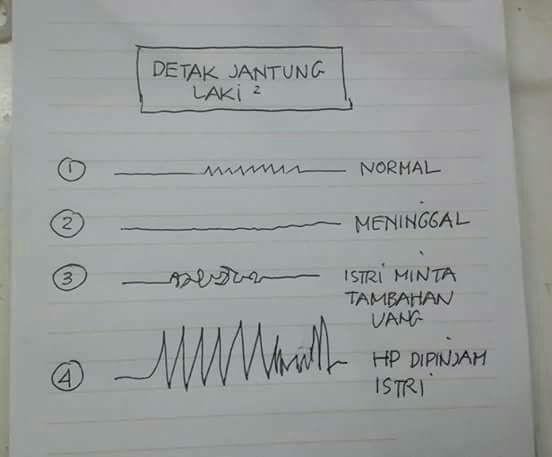 DETAK JANTUNG
LAKI ²
① NORMAL
② MENINGGAL
③ ISTRI MINTA
TAMBAHAN
UANG
④ HP DIPINJAM
ISTRI